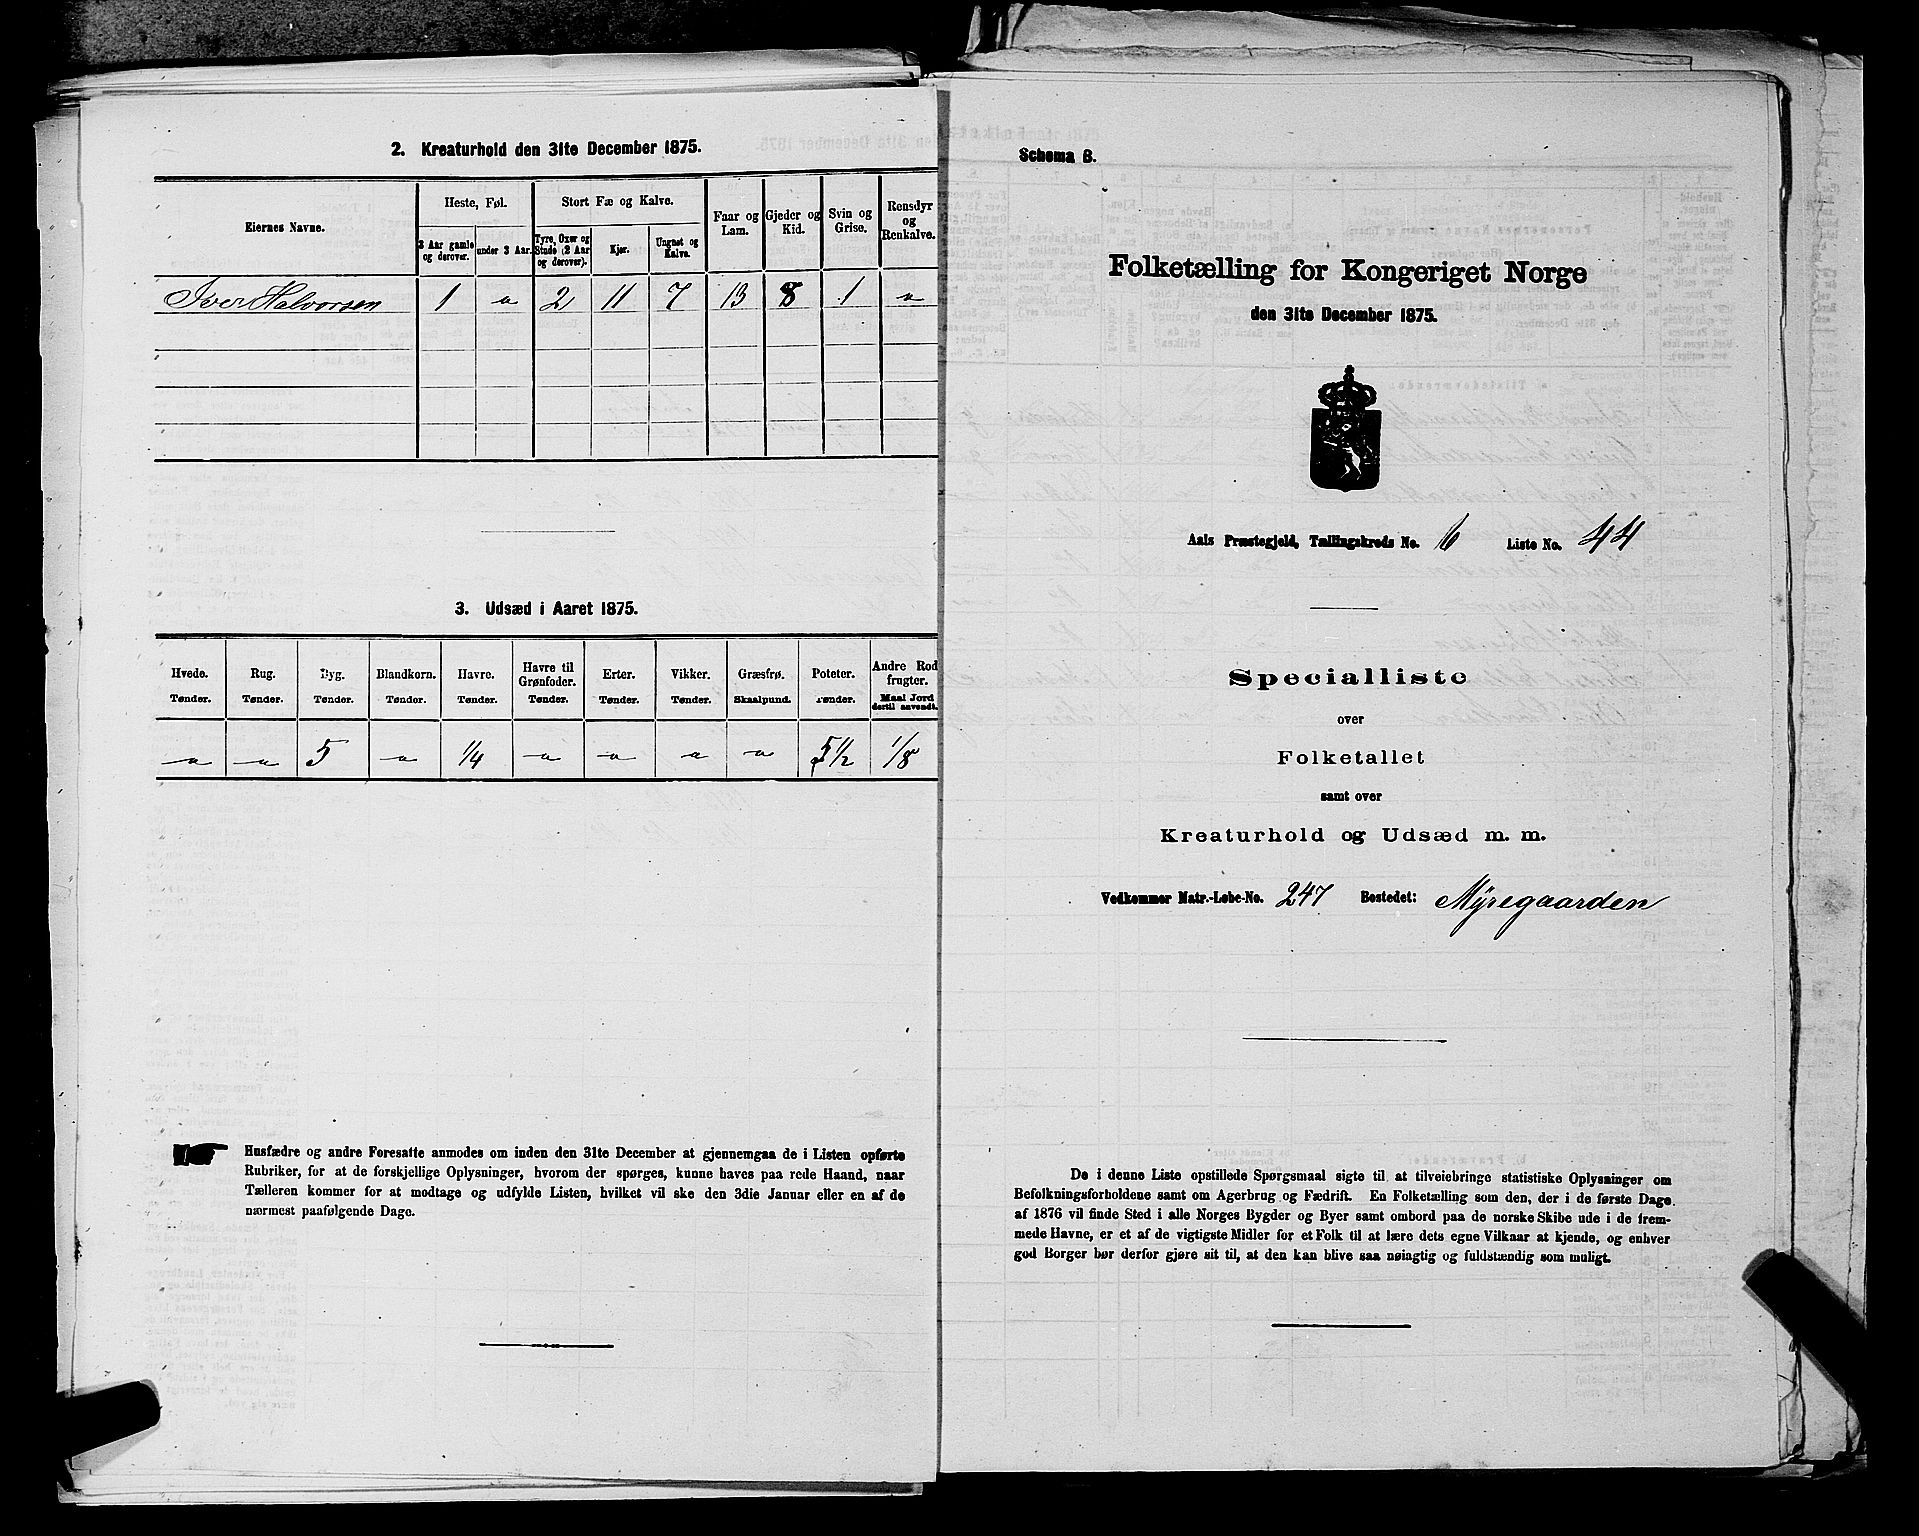 2. Kreaturhold den 31te December 1875.
Eiernes Navne.
Heste, Føl.
Stort Fæ og Kalve.
Faar og Lam.
Gjeder og Kid.
Svin og Grise.
Rensdyr og Renkalve.
3 Aar gamle og derover.
under 3 Aar.
Tyre, Oxer og Stude (2 Aar og derover).
Kjør.
Ungnet og Kalve.
Iver Halvorsen 1 " 2 11 7 13 8 1 "
3. Udsæd i Aaret 1875.
Hvede. Rug. Byg. Blandkorn. Havre. Havre til Grønfoder. Erter. Vikker. Græsfrø. Poteter. Andre Rodfrugter.
Tønder. Tønder. Tønder. Tønder. Tønder. Tønder. Tønder. Tønder. Skaalpund. Tønder. Maal Jord dertil anvendt.
" " 5 " 1/4 " " " " 5 1/2 1/8
Husfædre og andre Foresatte anmodes om inden den 31te December at gjennemgaa de i Listen opførte
Rubriker, for at de forskjellige Oplysninger, hvorom der spørges, kunne haves paa rede Haand, naar
Tælleren kommer for at modtage og udfylde Listen, hvilket vil ske den 3die Januar eller en af de
nærmest paafølgende Dage.
Schema B.
Folketælling for Kongeriget Norge
den 31te December 1875.
Aals Præstegjeld, Tællingskreds No. 6 Liste No. 44
Specialliste
over
Folketallet
samt over
Kreaturhold og Udsæd m. m.
Vedkommer Matr.-Løbe-No. 247 Bostedet: Myregaarden
De i denne Liste opstillede Spørgsmaal sigte til at tilveiebringe statistiske Oplysninger om
Befolkningsforholdene samt om Agerbrug og Fædrift. En Folketælling som den, der i de første Dage
af 1876 vil finde Sted i alle Norges Bygder og Byer samt ombord paa de norske Skibe ude i de frem-
mede Havne, er et af de vigtigste Midler for et Folk til at lære dets egne Vilkaar at kjende, og enhver
god Borger bør derfor gjøre sit til, at den kan blive saa nøiagtig og fuldstændig som muligt.